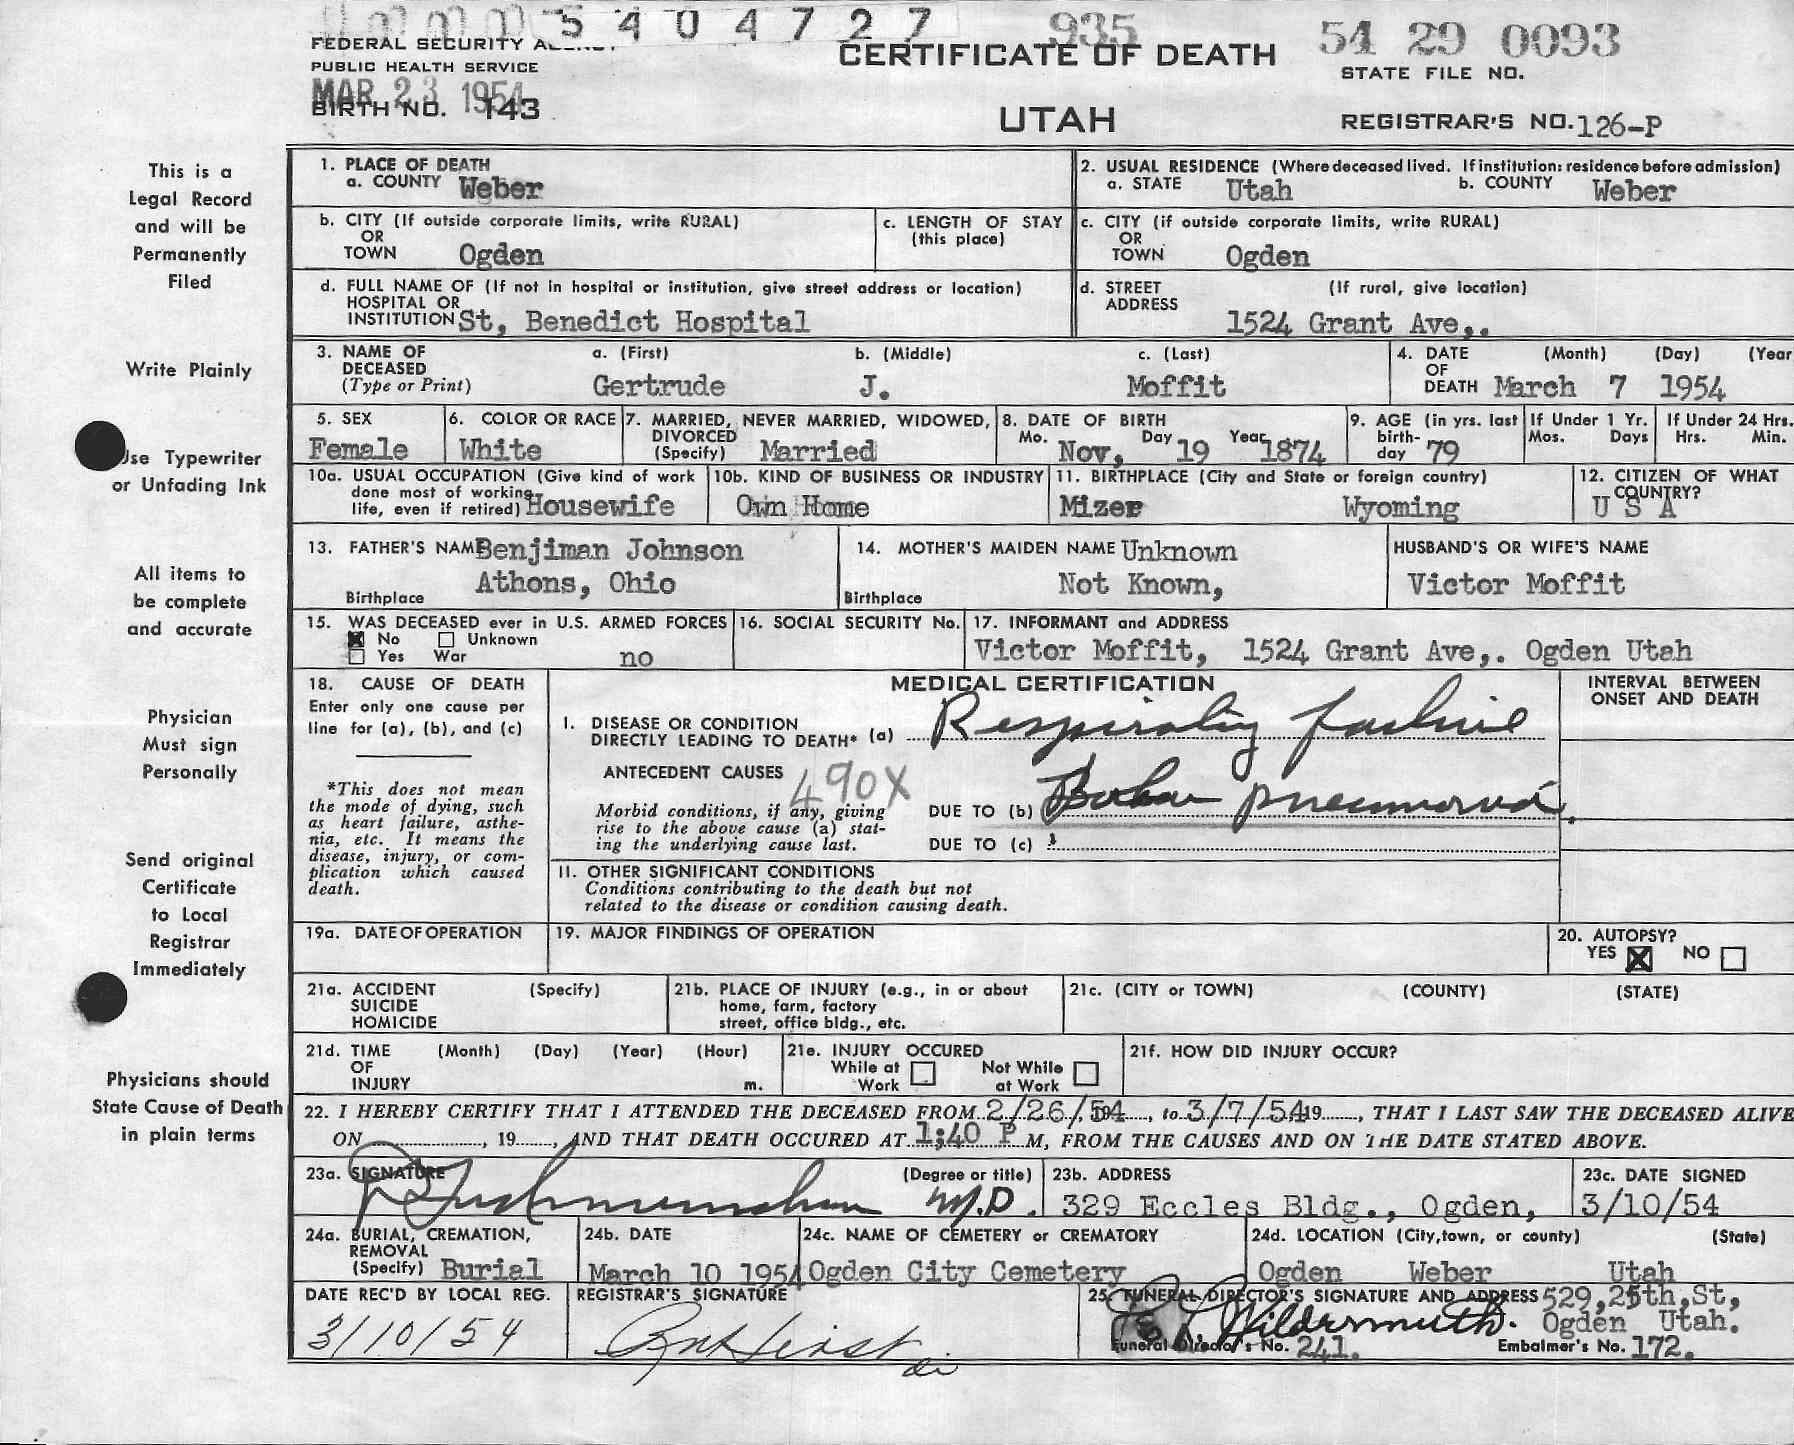 5 4 0 4 7 2 7 935 54 29 0093
FEDERAL SECURITY
CERTIFICATE OF DEATH
STATE FILE NO.
PUBLIC HEALTH SERVICE
MAR 23 1954
BIRTH NO. 143
UTAH
REGISTRAR'S NO. 126-P
This is a
Legal Record
and will be
Permanently
Filed
Write Plainly
Use Typewriter
or Unfading Ink
All items to
be complete
and accurate
Physician
Must sign
Personally
Send original
Certificate
to Local
Registrar
Immediately
Physicians should
State Cause of Death
in plain terms
1. PLACE OF DEATH
a. COUNTY Weber
2. USUAL RESIDENCE (Where deceased lived. If institution: residence before admission)
a. STATE Utah b. COUNTY Weber
b. CITY (If outside corporate limits, write RURAL)
OR
TOWN Ogden
c. LENGTH OF STAY
(this place)
c. CITY (if outside corporate limits, write RURAL)
OR
TOWN Ogden
d. FULL NAME OF (If not in hospital or institution, give street address or location)
HOSPITAL OR
INSTITUTION St, Benedict Hospital
d. STREET (If rural, give location)
ADDRESS
1524 Grant Ave,.
3. NAME OF a. (First) b. (Middle) c. (Last)
DECEASED
(Type or Print) Gertrude J. Moffit
4. DATE (Month) (Day) (Year
OF
DEATH March 7 1954
5. SEX
Female
6. COLOR OR RACE
White
7. MARRIED, NEVER MARRIED, WIDOWED,
DIVORCED
(Specify) Married
8. DATE OF BIRTH
Mo. Nov, Day 19 Year 1874
9. AGE (in yrs. last
birth-
day 79
If Under 1 Yr.
Mos. Days
If Under 24 Hrs.
Hrs. Min.
10a. USUAL OCCUPATION (Give kind of work
done most of working
life, even if retired) Housewife
10b. KIND OF BUSINESS OR INDUSTRY
Own Home
11. BIRTHPLACE (City and State or foreign country)
Mizer Wyoming
12. CITIZEN OF WHAT
COUNTRY?
U S A
13. FATHER'S NAME Benjiman Johnson
Athons, Ohio
Birthplace
14. MOTHER'S MAIDEN NAME Unknown
Not Known,
Birthplace
HUSBAND'S OR WIFE'S NAME
Victor Moffit
15. WAS DECEASED ever in U.S. ARMED FORCES
No Unknown
Yes War no
16. SOCIAL SECURITY No.
17. INFORMANT and ADDRESS
Victor Moffit, 1524 Grant Ave,. Ogden Utah
18. CAUSE OF DEATH
Enter only one cause per
line for (a), (b), and (c)
*This does not mean
the mode of dying, such
as heart failure, asthe-
nia, etc. It means the
disease, injury, or com-
plication which caused
death.
MEDICAL CERTIFICATION
INTERVAL BETWEEN
ONSET AND DEATH
I. DISEASE OR CONDITION
DIRECTLY LEADING TO DEATH* (a) Respiratory failure
ANTECEDENT CAUSES 490X
Morbid conditions, if any, giving
rise to the above cause (a) stat-
ing the underlying cause last.
DUE TO (b) pneumonia
DUE TO (c)
II. OTHER SIGNIFICANT CONDITIONS
Conditions contributing to the death but not
related to the disease or condition causing death.
19a. DATE OF OPERATION
19. MAJOR FINDINGS OF OPERATION
20. AUTOPSY?
YES NO
21a. ACCIDENT (Specify)
SUICIDE
HOMICIDE
21b. PLACE OF INJURY (e.g., in or about
home, farm, factory
street, office bldg., etc.
21c. (CITY or TOWN) (COUNTY) (STATE)
21d. TIME (Month) (Day) (Year) (Hour)
OF
INJURY m.
21e. INJURY OCCURED
While at Not While
Work at Work
21f. HOW DID INJURY OCCUR?
22. I HEREBY CERTIFY THAT I ATTENDED THE DECEASED FROM 2/26/54, to 3/7/54 19, THAT I LAST SAW THE DECEASED ALIVE
ON , 19 , AND THAT DEATH OCCURED AT 1:40 P M, FROM THE CAUSES AND ON THE DATE STATED ABOVE.
23a. SIGNATURE (Degree or title)
M.D.
23b. ADDRESS
329 Eccles Bldg., Ogden,
23c. DATE SIGNED
3/10/54
24a. BURIAL, CREMATION,
REMOVAL
(Specify) Burial
24b. DATE
March 10 1954
24c. NAME OF CEMETERY or CREMATORY
Ogden City Cemetery
24d. LOCATION (City, town, or county) (State)
Ogden Weber Utah
DATE REC'D BY LOCAL REG.
3/10/54
REGISTRAR'S SIGNATURE
25. FUNERAL DIRECTOR'S SIGNATURE AND ADDRESS 529, 25th, St,
Wildermuth. Ogden Utah.
Funeral Director's No. 241. Embalmer's No. 172.